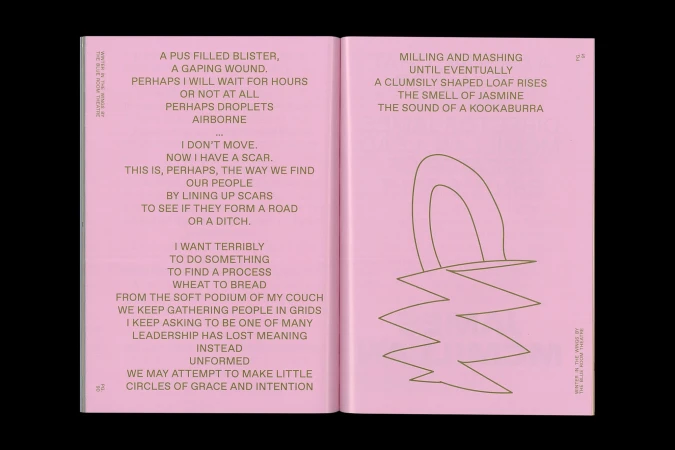 WINTER IN THE WINGS BY
THE BLUE ROOM THEATRE
A PUS FILLED BLISTER,
A GAPING WOUND.
PERHAPS I WILL WAIT FOR HOURS
OR NOT AT ALL
PERHAPS DROPLETS
AIRBORNE
...
I DON'T MOVE.
NOW I HAVE A SCAR.
THIS IS, PERHAPS, THE WAY WE FIND
OUR PEOPLE
BY LINING UP SCARS
TO SEE IF THEY FORM A ROAD
OR A DITCH.
I WANT TERRIBLY
TO DO SOMETHING
TO FIND A PROCESS
WHEAT TO BREAD
FROM THE SOFT PODIUM OF MY COUCH
WE KEEP GATHERING PEOPLE IN GRIDS
I KEEP ASKING TO BE ONE OF MANY
LEADERSHIP HAS LOST MEANING
INSTEAD
UNFORMED
WE MAY ATTEMPT TO MAKE LITTLE
CIRCLES OF GRACE AND INTENTION
MILLING AND MASHING
UNTIL EVENTUALLY
A CLUMSILY SHAPED LOAF RISES
THE SMELL OF JASMINE
THE SOUND OF A KOOKABURRA
WINTER IN THE WINGS BY
THE BLUE ROOM THEATRE